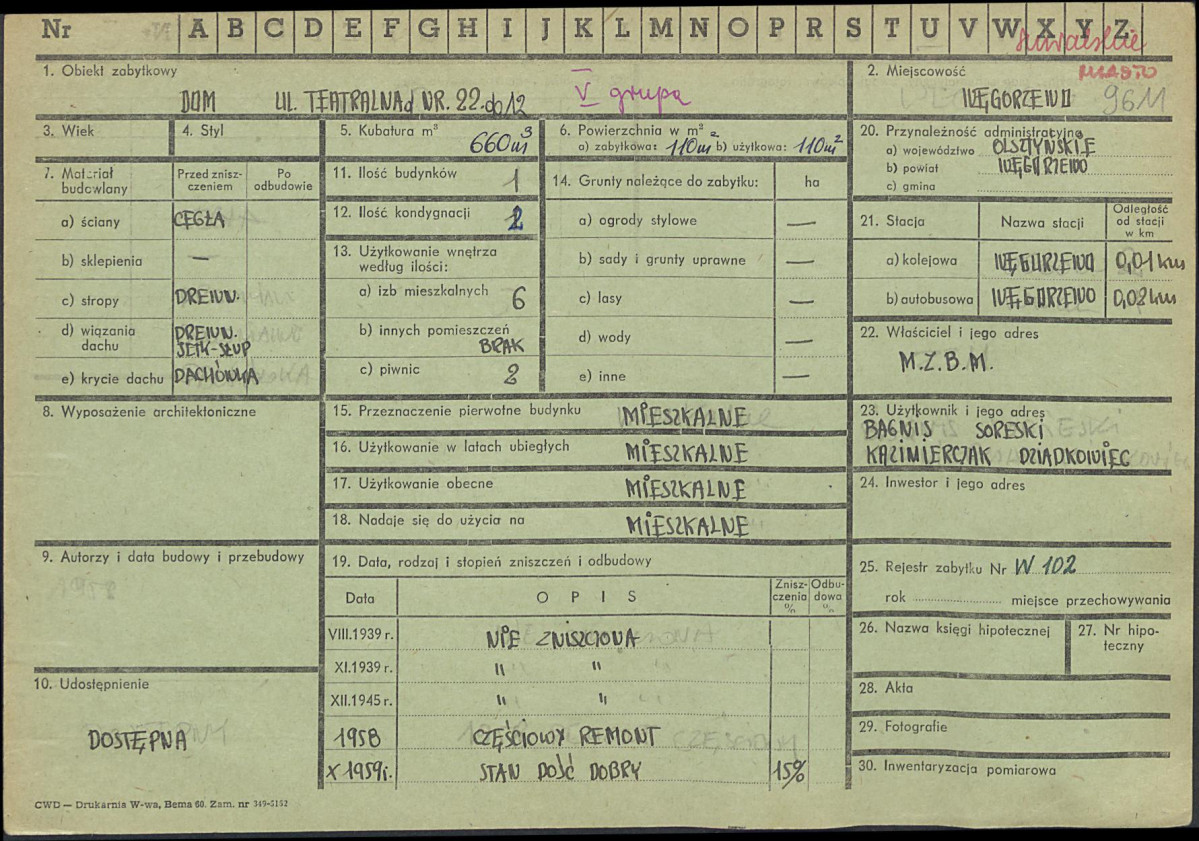 Nr A B C D E F G H I J K L M N O P R S T U V W X Y Z
suwalskie
MIASTO
1. Obiekt zabytkowy
DOM UL. TEATRALNA d NR. 22 do 12
V grupa
2. Miejscowość
WĘGORZEWO 9611
3. Wiek
4. Styl
5. Kubatura m³
660m³
6. Powierzchnia w m²
a) zabytkowa: 110m² b) użytkowa: 110m²
20. Przynależność administracyjna
a) województwo OLSZTYŃSKIE
b) powiat WĘGORZEWO
c) gmina
7. Materiał budowlany
Przed zniszczeniem
Po odbudowie
a) ściany CEGŁA
b) sklepienia —
c) stropy DREWN.
d) wiązania dachu DREWN. JĘTK-SŁUP
e) krycie dachu DACHÓWKA
11. Ilość budynków 1
12. Ilość kondygnacji 2
13. Użytkowanie wnętrza według ilości:
a) izb mieszkalnych 6
b) innych pomieszczeń BRAK
c) piwnic 2
14. Grunty należące do zabytku: ha
a) ogrody stylowe —
b) sady i grunty uprawne —
c) lasy —
d) wody —
e) inne —
21. Stacja Nazwa stacji Odległość od stacji w km
a) kolejowa WĘGORZEWO 0,01 km
b) autobusowa WĘGORZEWO 0,02 km
22. Właściciel i jego adres
M.Z.B.M.
8. Wyposażenie architektoniczne
15. Przeznaczenie pierwotne budynku MIESZKALNE
16. Użytkowanie w latach ubiegłych MIESZKALNE
17. Użytkowanie obecne MIESZKALNE
18. Nadaje się do użycia na MIESZKALNE
23. Użytkownik i jego adres
BAGNIS SORESKI
KAZIMIERCZAK DZIADKOWIEC
24. Inwestor i jego adres
9. Autorzy i data budowy i przebudowy
19. Data, rodzaj i stopień zniszczeń i odbudowy
Data OPIS Zniszczenia % Odbudowa %
VIII.1939 r. NIE ZNISZCZONA
XI.1939 r. " "
XII.1945 r. " "
1958 CZĘŚCIOWY REMONT
X 1959 r. STAN DOŚĆ DOBRY 15%
25. Rejestr zabytku Nr W 102
rok miejsce przechowywania
26. Nazwa księgi hipotecznej
27. Nr hipoteczny
28. Akta
29. Fotografie
30. Inwentaryzacja pomiarowa
10. Udostępnienie
DOSTĘPNA
CWD — Drukarnia W-wa, Bema 60. Zam. nr 349-5162